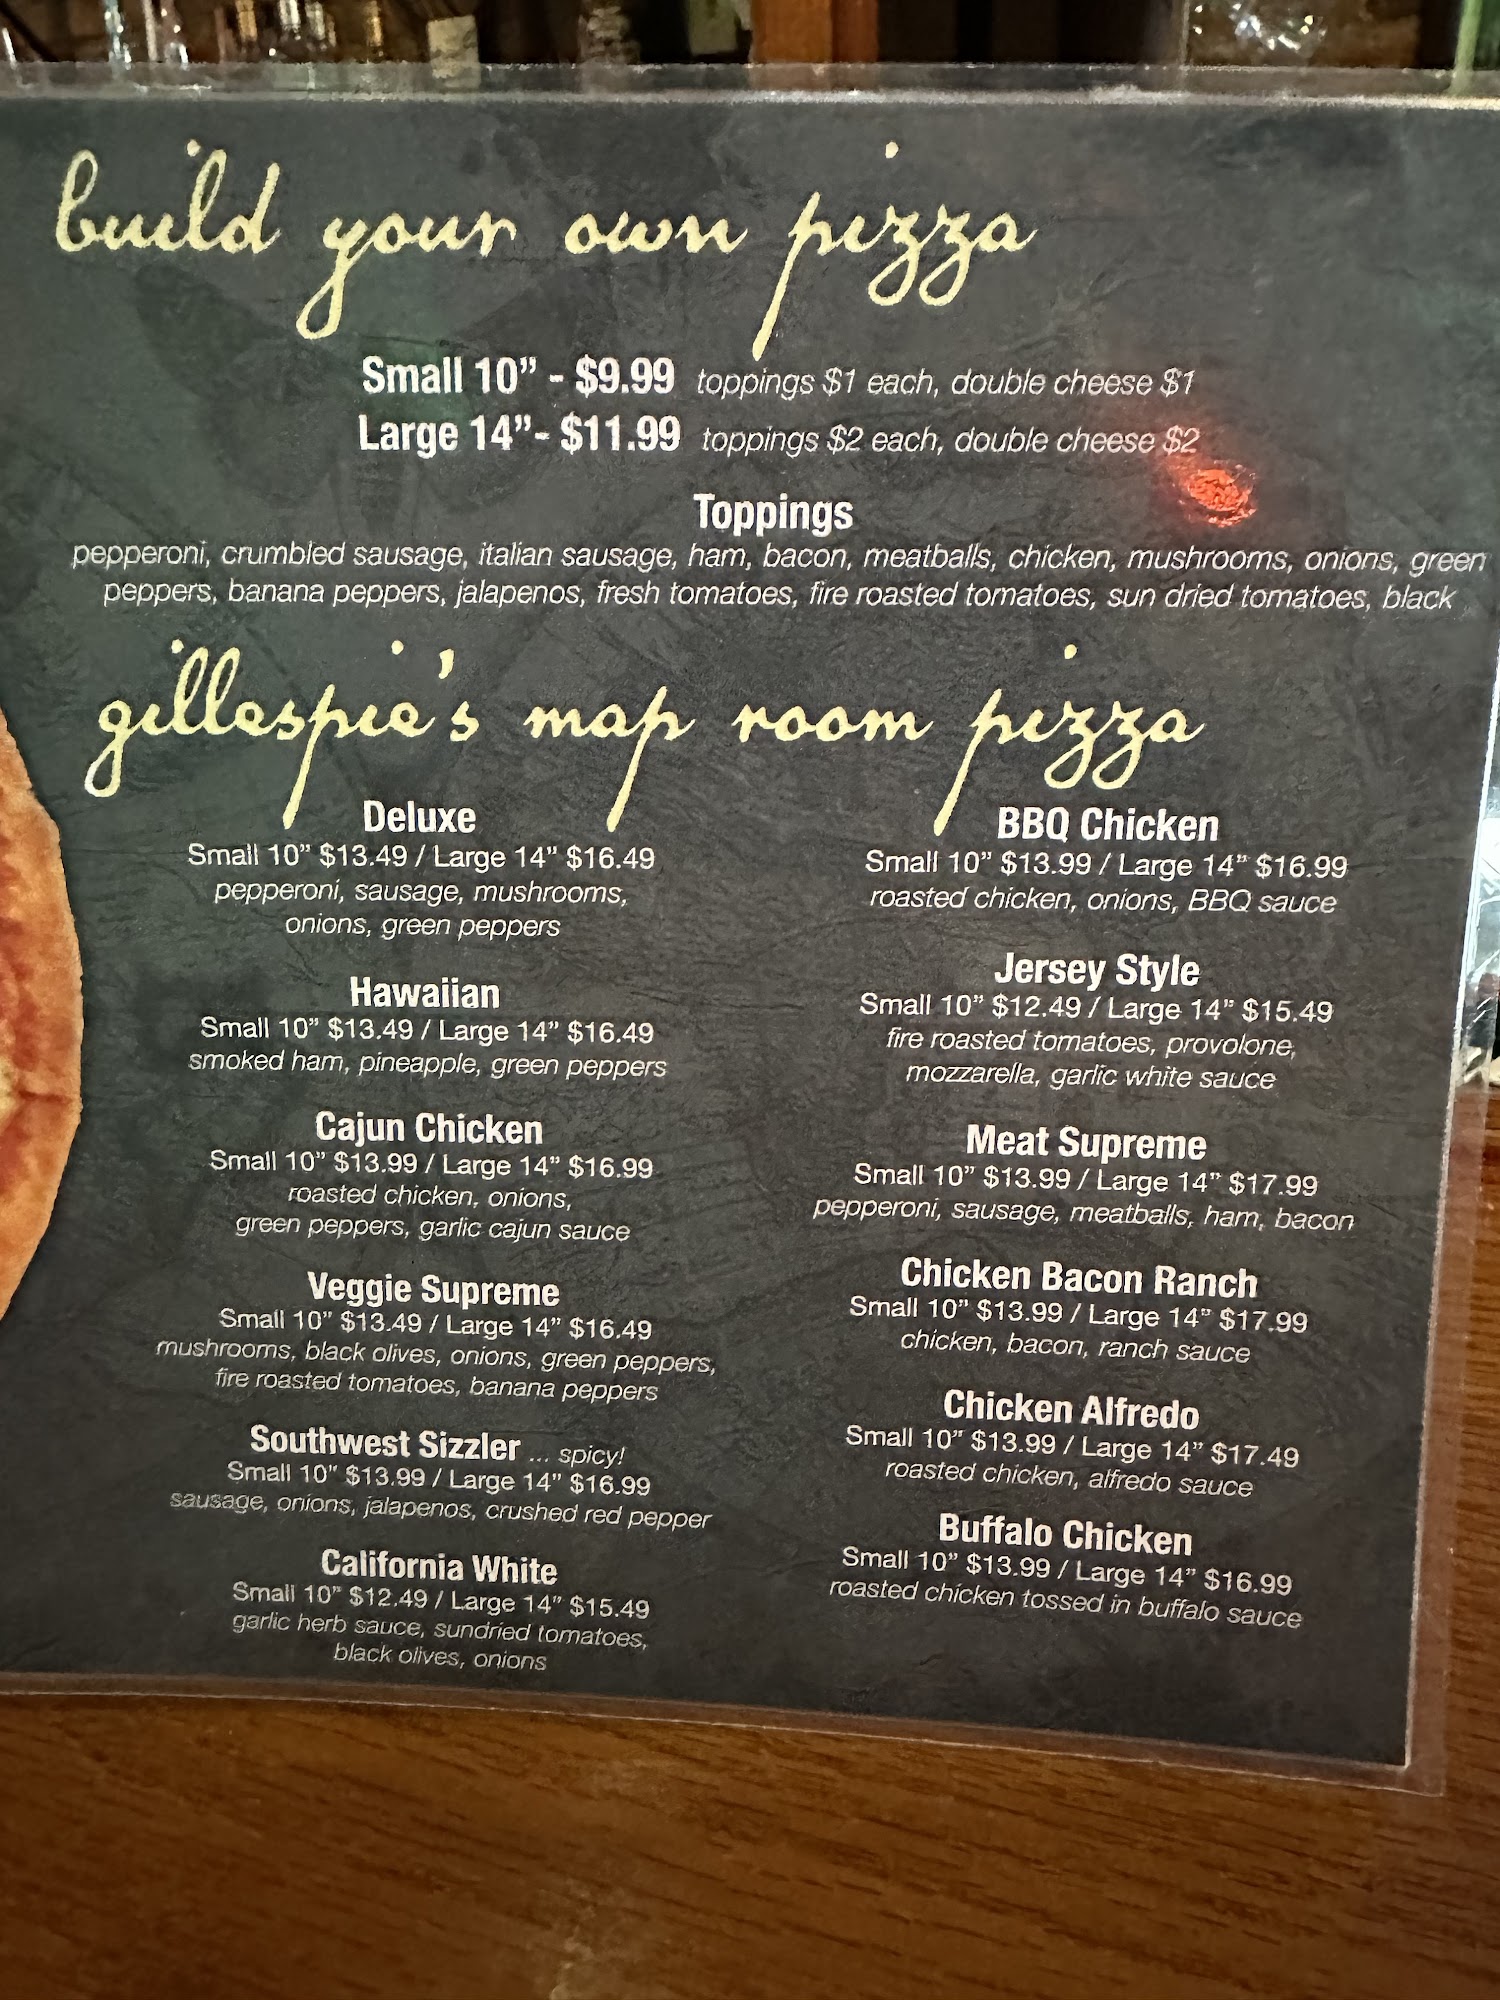 build your own pizza
Small 10” - $9.99 toppings $1 each, double cheese $1
Large 14”- $11.99 toppings $2 each, double cheese $2
Toppings
pepperoni, crumbled sausage, italian sausage, ham, bacon, meatballs, chicken, mushrooms, onions, green
peppers, banana peppers, jalapenos, fresh tomatoes, fire roasted tomatoes, sun dried tomatoes, black
gillespie's map room pizza
Deluxe
Small 10” $13.49 / Large 14” $16.49
pepperoni, sausage, mushrooms,
onions, green peppers
Hawaiian
Small 10” $13.49 / Large 14” $16.49
smoked ham, pineapple, green peppers
Cajun Chicken
Small 10” $13.99 / Large 14” $16.99
roasted chicken, onions,
green peppers, garlic cajun sauce
Veggie Supreme
Small 10” $13.49 / Large 14” $16.49
mushrooms, black olives, onions, green peppers,
fire roasted tomatoes, banana peppers
Southwest Sizzler ... spicy!
Small 10” $13.99 / Large 14” $16.99
sausage, onions, jalapenos, crushed red pepper
California White
Small 10” $12.49 / Large 14” $15.49
garlic herb sauce, sundried tomatoes,
black olives, onions
BBQ Chicken
Small 10” $13.99 / Large 14” $16.99
roasted chicken, onions, BBQ sauce
Jersey Style
Small 10” $12.49 / Large 14” $15.49
fire roasted tomatoes, provolone,
mozzarella, garlic white sauce
Meat Supreme
Small 10” $13.99 / Large 14” $17.99
pepperoni, sausage, meatballs, ham, bacon
Chicken Bacon Ranch
Small 10” $13.99 / Large 14” $17.99
chicken, bacon, ranch sauce
Chicken Alfredo
Small 10” $13.99 / Large 14” $17.49
roasted chicken, alfredo sauce
Buffalo Chicken
Small 10” $13.99 / Large 14” $16.99
roasted chicken tossed in buffalo sauce